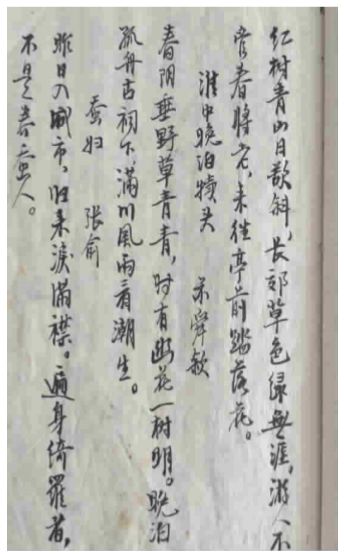 红树青山日欲斜,长郊草色绿無涯。游人不
管春將老,来往亭前踏落花。
淮中晚泊犊头 苏舜钦
春阴垂野草青青,时有幽花一树明。晚泊
孤舟古祠下滿川風雨看潮生。
蚕妇 张俞
昨日入城市,归来淚滿襟。遍身绮羅者,
不是养蚕人。